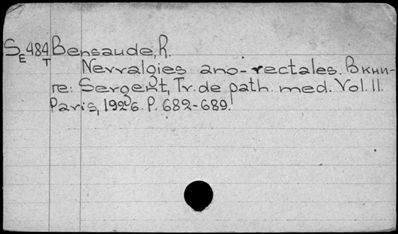 SE 484 T Bensaude, R.
Nevralgies ano-rectales. В кни-
ге: Sergent, Tr. de path. med. Vol. II.
Paris, 1926. P. 682-689.